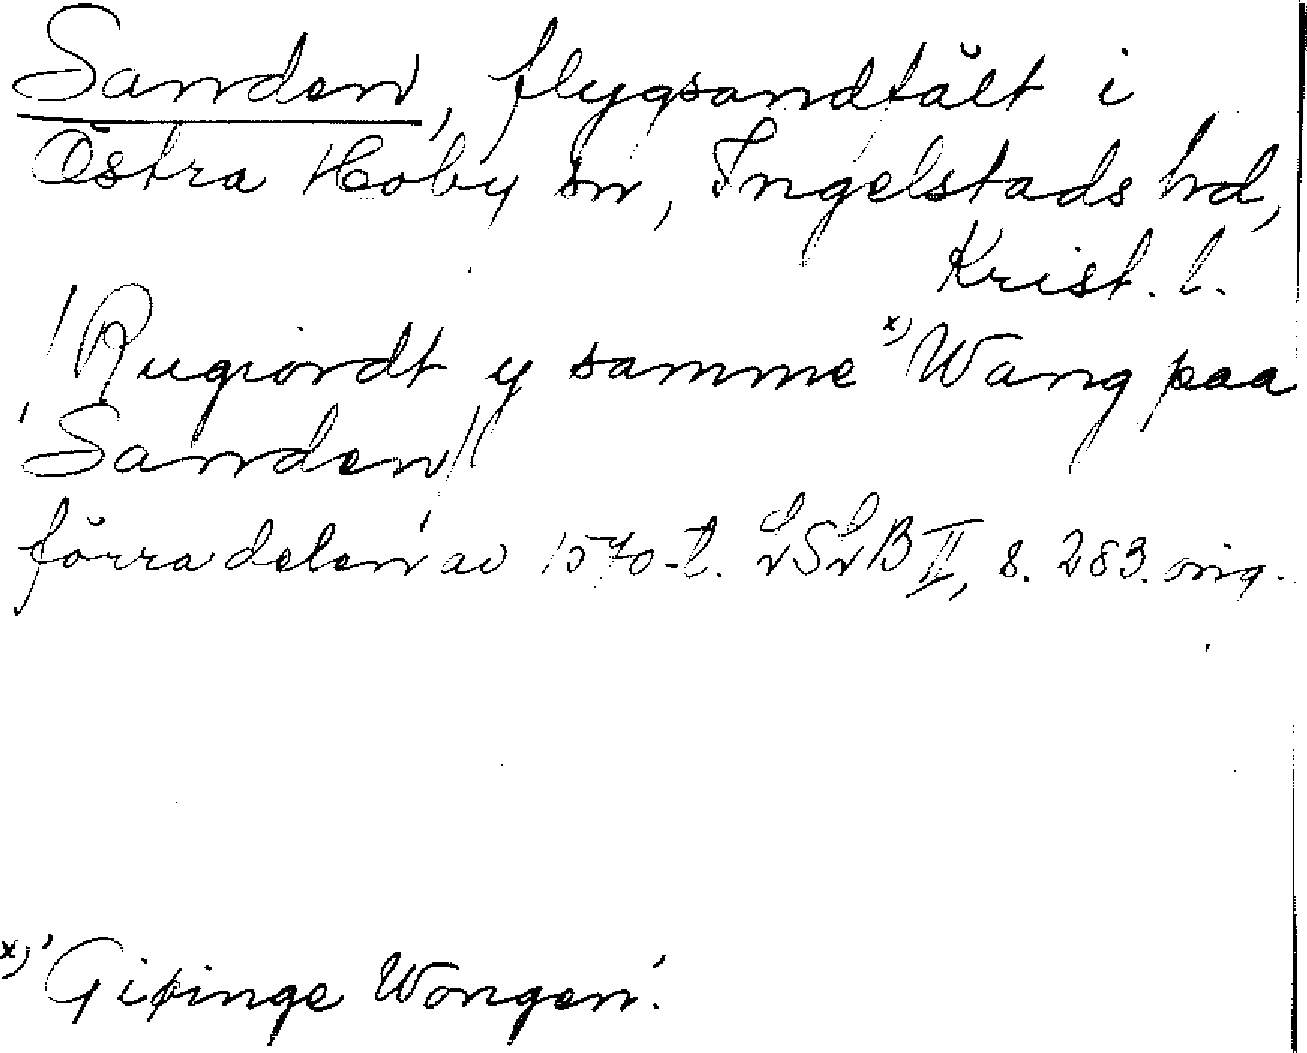 Sanden, flygsandfält i
Östra Hoby sn, Ingelstads hd,
Krist. l.
/Rugiordt y samme x) Wang paa
Sanden/
förra delen av 1570-t. LSLB II, s. 283. orig.
x) 'Gislinge Wongen'.